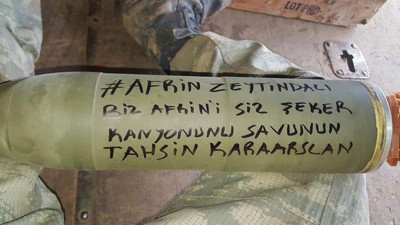 LOT PRO
#AFRIN ZEYTINDALI
BIZ AFRİN'İ SİZ ŞEKER
KANYONUNU SAVUNUN
TAHSİN KARAARSLAN